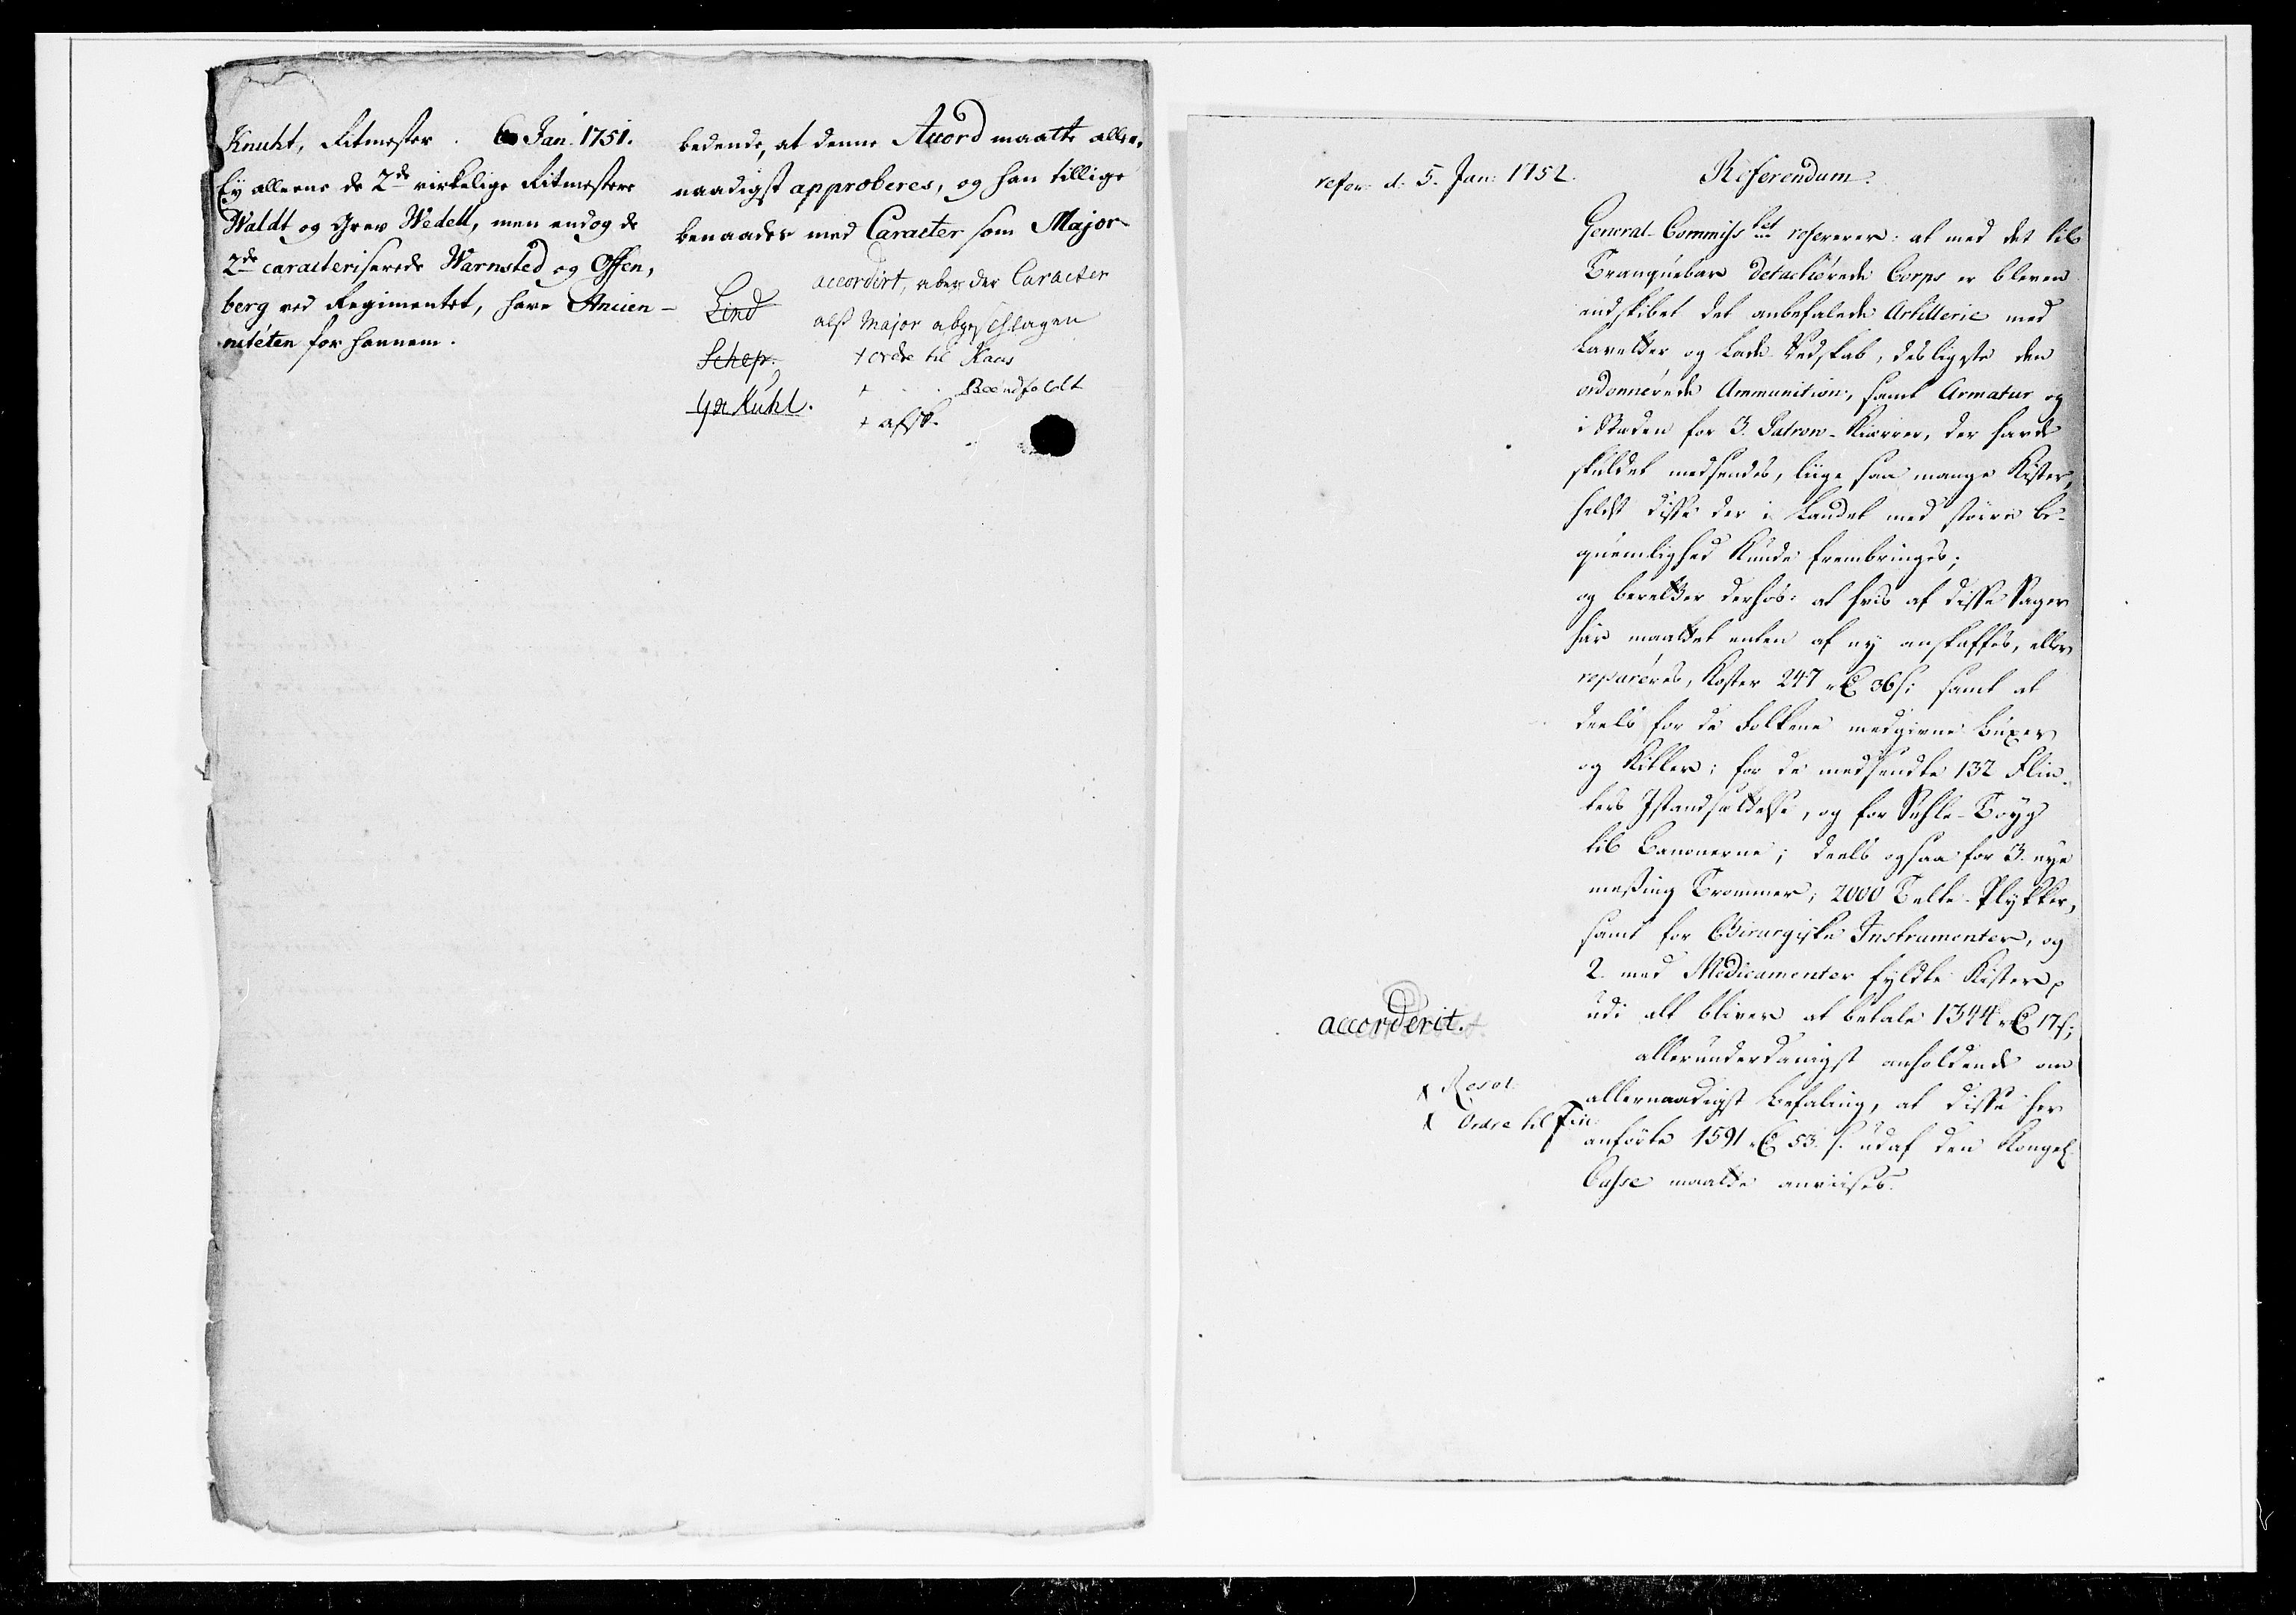 Knuht, Ritmester. 6 Jan. 1751.
Ey alleene de 2de virkelige Ritmestere
Waldt og Grev Wedell, men endog de
2de caracteriserede Warnsted og Offen,
berg ved Regimentet, have Ancien-
niteten for hannem.
bedende, at denne Accord maatte aller,
naadigst approberes, og han tillige
benaades med Caracter som Major
accordirt, aber der Caracter
alss Major abgeschlagen
Lind
Schep.
+ ordre til Kaas
+ Beenfeldt
+ afsk.
refer. d. 5. Jan: 1752.
Referendum.
General-Commiss.tet refererer: at med det til
Tranquebar detachérede Corps er bleven
indskibet det anbefalede Artillerie med
Lavetter og Lade-Redskab, desligeste den
ordonnerede Ammunition, samt Armatur og
i Steden for 3. Patron-Kiærrer, der havde
skuldet medsendes, liige saa mange Kister,
helst disse der i Landet med større be-
quemlighed kunde frembringes;
og beretter derhos: at hvis af disse Sager
har maattet enten af ny anskaffes, eller
repareres, koster 247 rC 36 s; samt at
deels for de Folkene medgivne Buxer
og Kitler; for de medsendte 132 Flin-
ters Istandsættelse, og for Sehle-Tøyg
til Canonerne; deels ogsaa for 3. nye
messing Trommer; 2000 Telte-Plykker,
samt for Chirurgiske Instrumenter, og
2. med Medicamenter fyldte Kister,
udi alt bliver at betale 1344 rC 17 s;
allerunderdanigst anholdende om
allernaadigst Befaling, at disse her
anførte 1591 rC 53. s. udaf den Kongel.
Casse maatte anviises.
accorderit.
x Resol.
x Ordre til Fin.